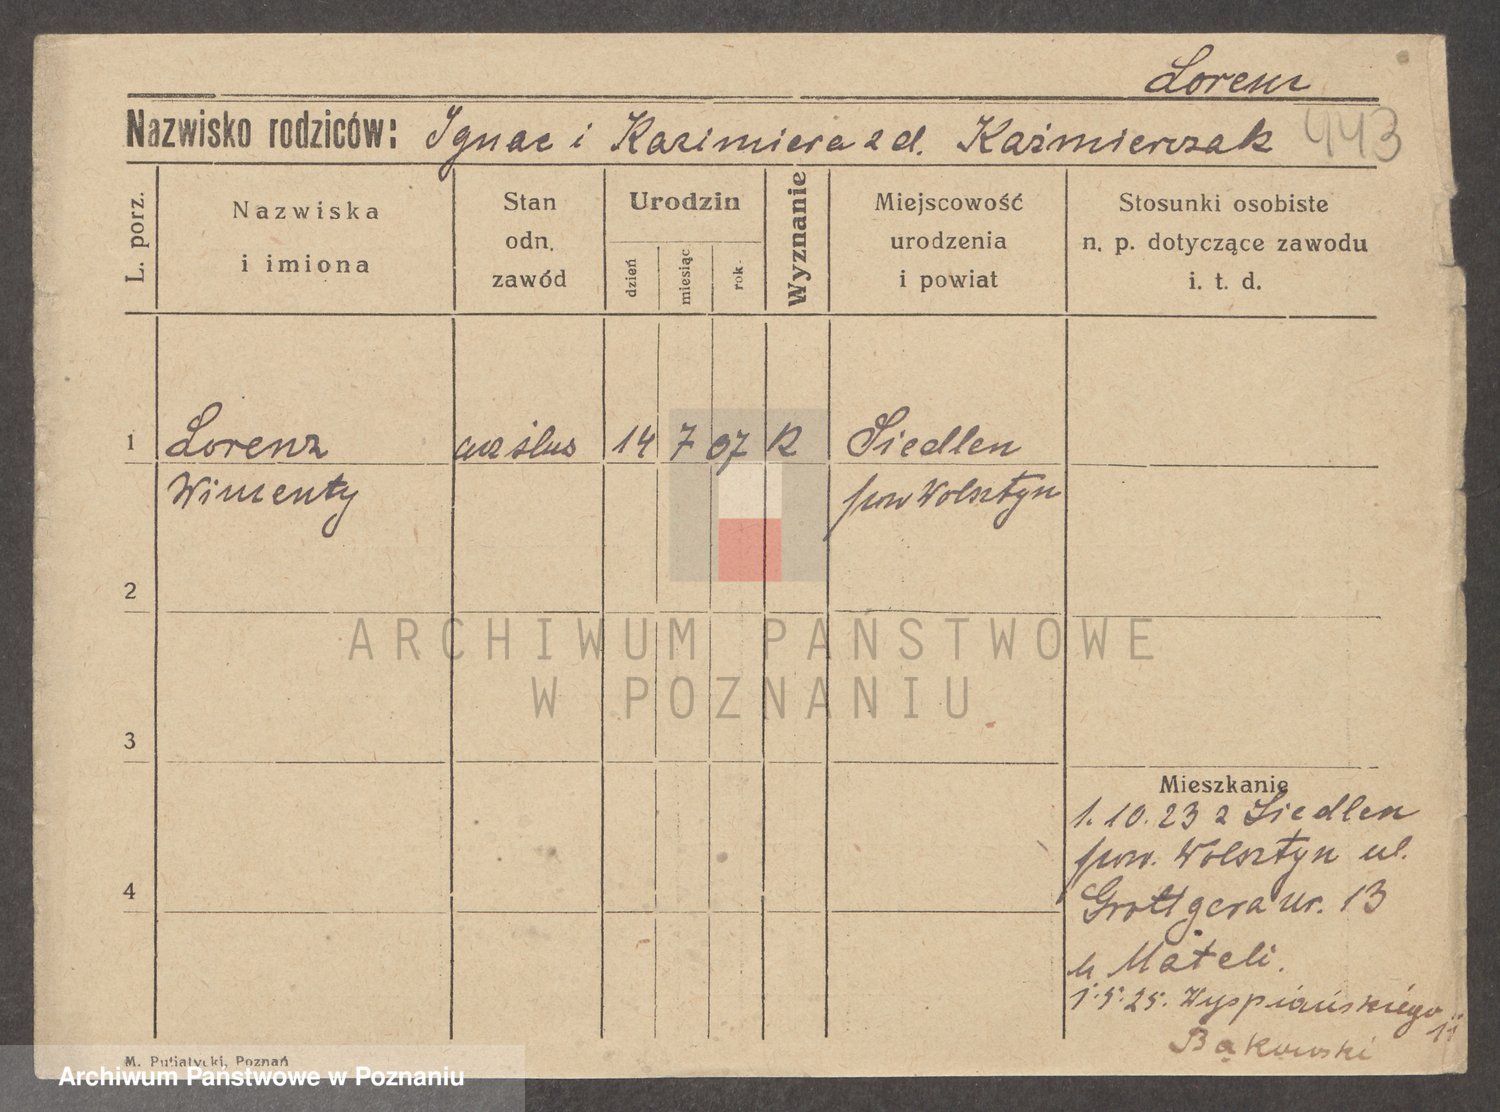 Lorenz
Nazwisko rodziców: Ignac i Kazimiera z d. Kaźmierczak 443
L. porz.
Nazwiska
i imiona
Stan
odn.
zawód
Urodzin
dzień
miesiąc
rok
Wyznanie
Miejscowość
urodzenia
i powiat
Stosunki osobiste
n. p. dotyczące zawodu
i. t. d.
1 Lorenz ucz ślus 14 7 07 R Siedlen
Wincenty pow Wolsztyn
2
ARCHIWUM PAŃSTWOWE
W POZNANIU
3
Mieszkanie
1.10.23 z Siedlen
pow. Wolsztyn ul.
4 Grottgera nr. 13
u Mateli.
1.5.25. Wyspiańskiego 11
Bąkowski
M. Putiatycki, Poznań
Archiwum Państwowe w Poznaniu